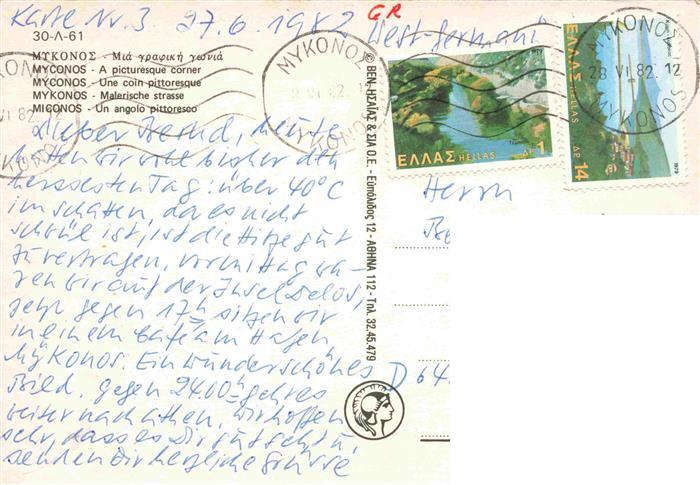 Karte Nr. 3 27.6.1982 GR
West-Germani
30-Λ-61
ΜΥΚΟΝΟΣ - Μιά γραφική γωνιά
MYCONOS - A picturesque corner
MYCONOS - Une coin pittoresque
MYKONOS - Malerische strasse
MICONOS - Un angolo pittoresco
ΜΥΚΟΝΟΣ
MYKONOS
28 VI 82. 12
ΕΛΛΑΣ HELLAS ΔΡ. 1
ΕΛΛΑΣ HELLAS ΔΡ. 14
1979
Lieber Bernd, heute
hatten wir wohl bisher den
heissesten Tag: über 40°C
im Schatten, da es nicht
schwül ist, ist die Hitze gut
zu vertragen, vormittag wa-
ren wir auf der Insel Delos,
jetzt gegen 17h sitzen wir
in einem Café am Hafen
Mykonos. Ein wunderschönes
Bild. gegen 24.00h geht es
weiter nach Athen. Wir hoffen
sehr, dass es Dir gut geht u.
senden Dir herzliche Grüsse
© ΒΕΝ. ΗΣΑΪΑΣ & ΣΙΑ Ο.Ε. - Εὐπόλιδος 12 - ΑΘΗΝΑ 112 - Τηλ. 32.45.479
Herrn
Be
D 64